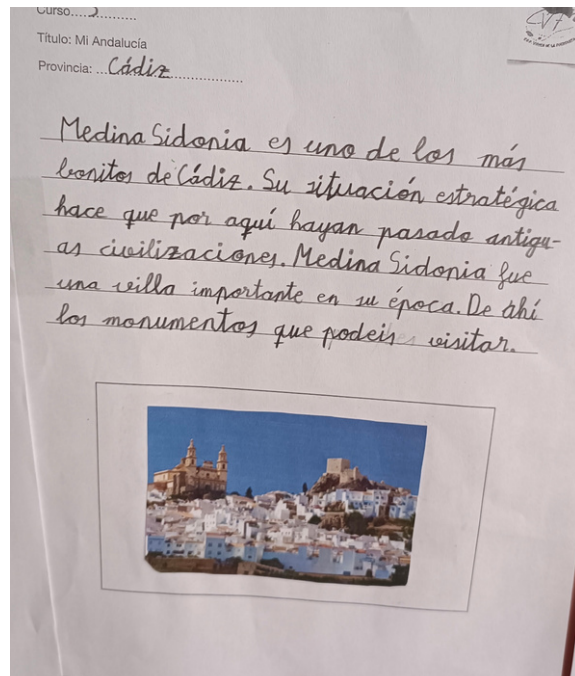 Curso.....
Título: Mi Andalucía
Provincia: ...Cádiz................
Medina Sidonia es uno de los más
bonitos de Cádiz. Su situación estratégica
hace que por aquí hayan pasado antigu-
as civilizaciones. Medina Sidonia fue
una villa importante en su época. De ahí
los monumentos que podeis visitar.